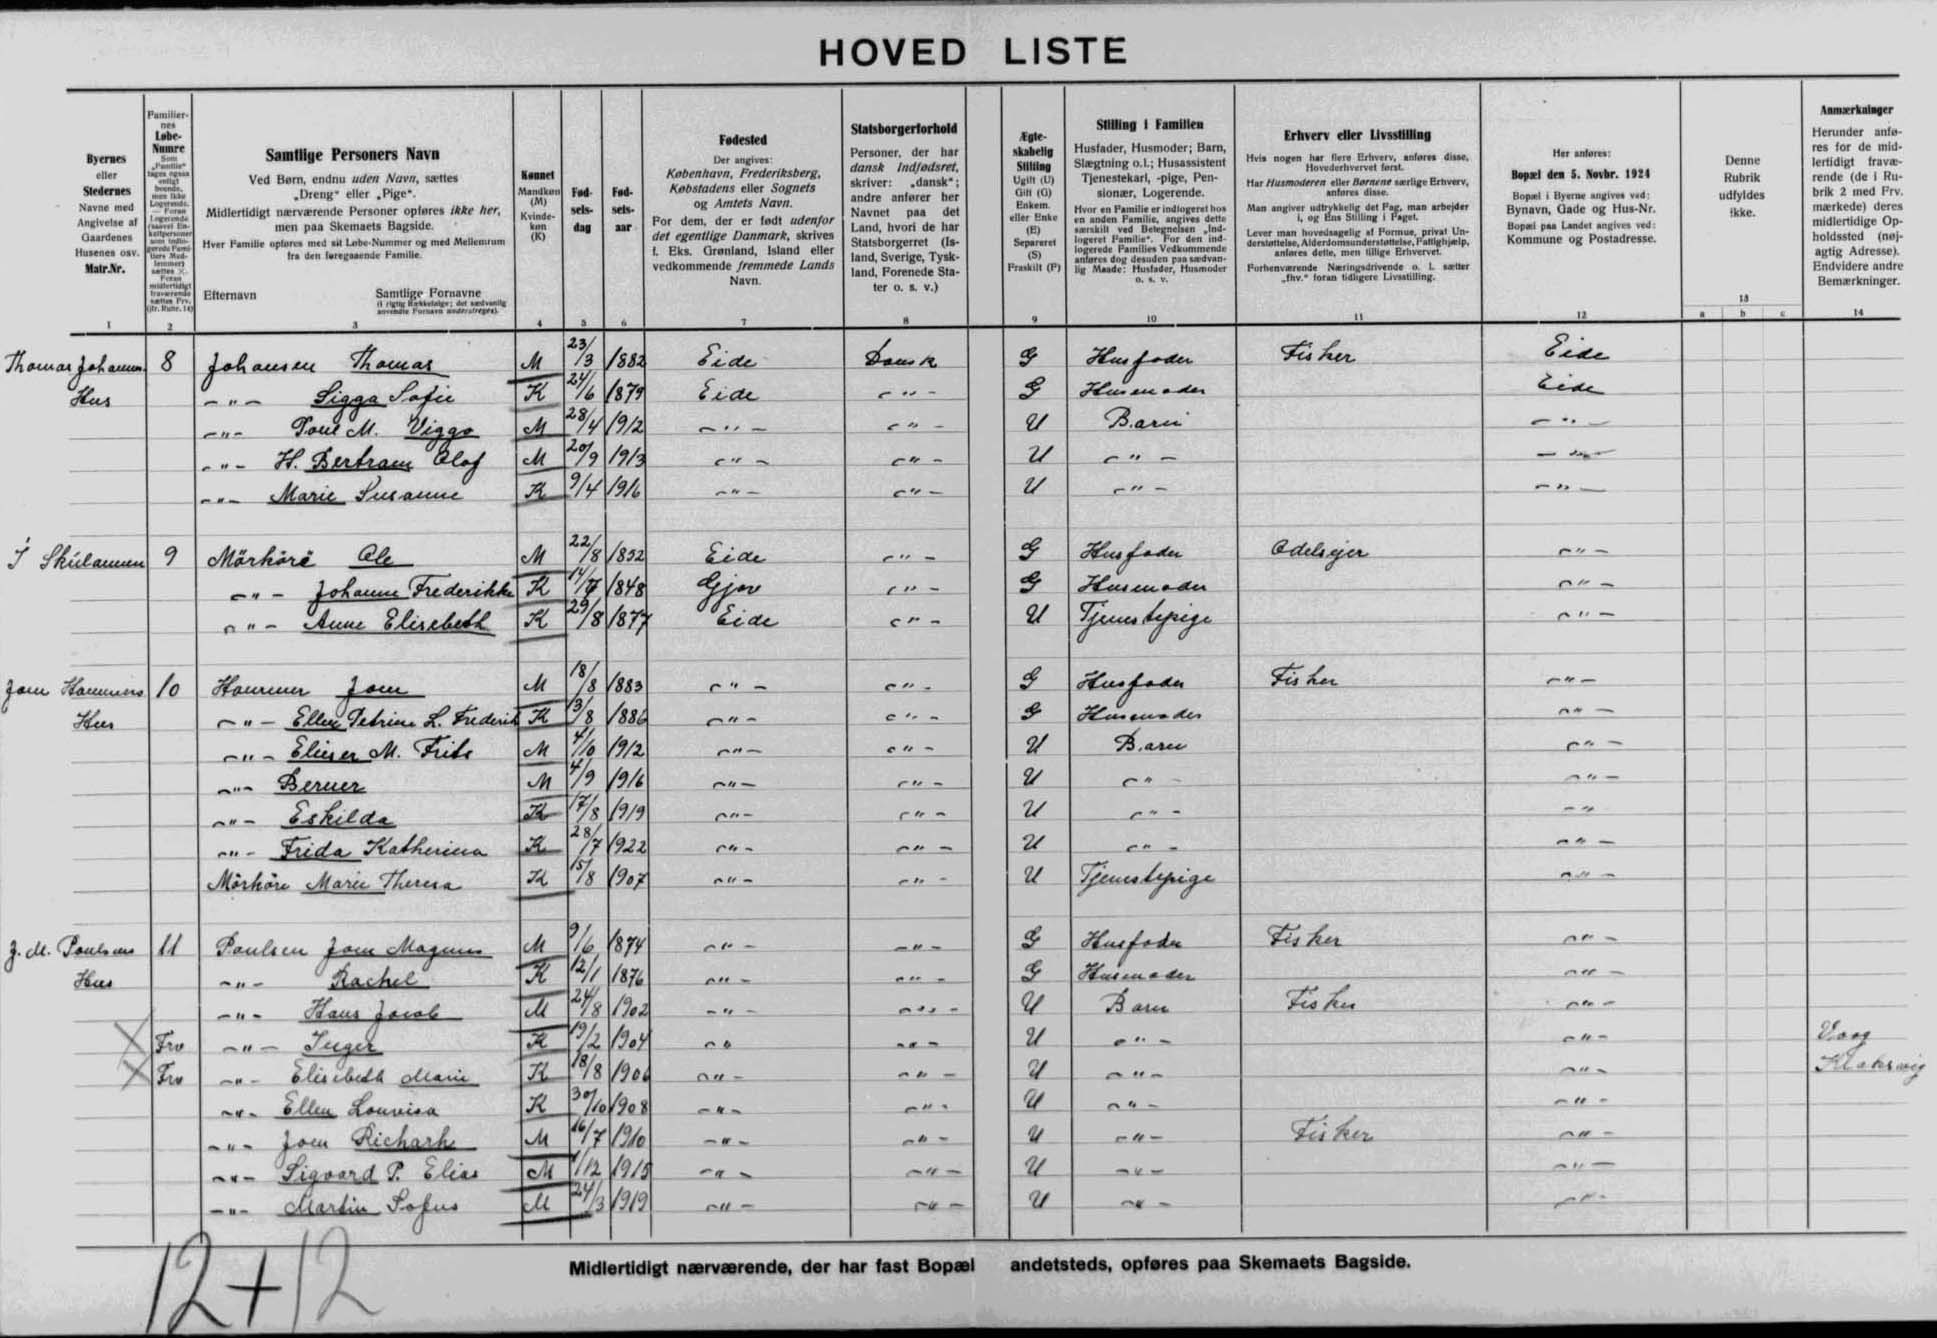 HOVED LISTE
Byernes
eller
Stedernes
Navne med
Angivelse af
Gaardenes
Husenes osv.
Matr.Nr.
1
Familier-
nes
Løbe-
Numre
2
Samtlige Personers Navn
Ved Børn, endnu uden Navn, sættes
„Dreng" eller „Pige".
Midlertidigt nærværende Personer opføres ikke her,
men paa Skemaets Bagside.
Hver Familie opføres med sit Løbe-Nummer og med Mellemrum
fra den foregaaende Familie.
Efternavn Samtlige Fornavne
(i rigtig Rækkefølge; det sædvanlig
anvendte Fornavn understreges).
3
Kønnet
Mandkøn
(M)
Kvinde-
køn
(K)
4
Fød-
sels-
dag
5
Fød-
sels-
aar
6
Fødested
Der angives:
København, Frederiksberg,
Købstadens eller Sognets
og Amtets Navn.
For dem, der er født udenfor
det egentlige Danmark, skrives
f. Eks. Grønland, Island eller
vedkommende fremmede Lands
Navn.
7
Statsborgerforhold
Personer, der har
dansk Indfødsret,
skriver: „dansk";
andre anfører her
Navnet paa det
Land, hvori de har
Statsborgerret (Is-
land, Sverige, Tysk-
land, Forenede Sta-
ter o. s. v.)
8
Ægte-
skabelig
Stilling
Ugift (U)
Gift (G)
Enkem.
eller Enke
(E)
Separeret
(S)
Fraskilt (F)
9
Stilling i Familien
Husfader, Husmoder; Barn,
Slægtning o.l.; Husassistent
Tjenestekarl, -pige, Pen-
sionær, Logerende.
Hvor en Familie er indlogeret hos
en anden Familie, angives dette
særskilt ved Betegnelsen „Ind-
logeret Familie". For den ind-
logerede Families Vedkommende
anføres dog desuden paa sædvan-
lig Maade: Husfader, Husmoder
o. s. v.
10
Erhverv eller Livsstilling
Hvis nogen har flere Erhverv, anføres disse,
Hovederhvervet først.
Har Husmoderen eller Børnene særlige Erhverv,
anføres disse.
Man angiver udtrykkelig det Fag, man arbejder
i, og Ens Stilling i Faget.
Lever man hovedsagelig af Formue, privat Un-
derstøttelse, Alderdomsunderstøttelse, Fattighjælp,
anføres dette, men tillige Erhvervet.
Forhenværende Næringsdrivende o. l. sætter
„fhv." foran tidligere Livsstilling.
11
Her anføres:
Bopæl den 5. Novbr. 1924
Bopæl i Byerne angives ved:
Bynavn, Gade og Hus-Nr.
Bopæl paa Landet angives ved:
Kommune og Postadresse.
12
Denne
Rubrik
udfyldes
ikke.
13
a b c
Anmærkninger
Herunder anfø-
res for de mid-
lertidigt fravæ-
rende (de i Ru-
brik 2 med Frv.
mærkede) deres
midlertidige Op-
holdssted (nøj-
agtig Adresse).
Endvidere andre
Bemærkninger.
14
Thomas Johannes 8 Johansen Thomas M 23/3 1882 Eide Dansk G Husfader Fisker Eide
Hus -"- Sigga Sofie K 24/6 1879 Eide -"- G Husmoder Eide
-"- Poul M. Viggo M 28/4 1912 -"- -"- U Barn -"-
-"- H. Bertram Olof M 20/9 1913 -"- -"- U -"- -"-
-"- Marie Susanne K 9/4 1916 -"- -"- U -"- -"-
Í Skúlanum 9 Mörköre Ole M 22/8 1852 Eide -"- G Husfader Odelsejer -"-
-"- Johanne Frederikke K 14/7 1848 Gjov -"- G Husmoder -"-
-"- Anne Elisebeth K 29/8 1877 Eide -"- U Tjenestepige -"-
Joen Hammers 10 Hammer Joen M 18/8 1883 -"- -"- G Husfader Fisker -"-
Hus -"- Ellen Petrine L. Frederik K 13/8 1886 -"- -"- G Husmoder -"-
-"- Elieser M. Frits M 4/10 1912 -"- -"- U Barn -"-
-"- Berner M 4/9 1916 -"- -"- U -"- -"-
-"- Eskilda K 17/8 1919 -"- -"- U -"- -"-
-"- Frida Katherina K 28/7 1922 -"- -"- U -"- -"-
Mörköre Marie Theresa K 15/8 1907 -"- -"- U Tjenestepige -"-
J. M. Poulsens 11 Poulsen Joen Magnus M 9/6 1874 -"- -"- G Husfader Fisker -"-
Hus -"- Rachel K 12/1 1876 -"- -"- G Husmoder -"-
-"- Hans Jacob M 24/8 1902 -"- -"- U Barn Fisker -"-
X Frv -"- Inger K 19/2 1904 -"- -"- U -"- -"- Vaag
X Frv -"- Elisebeth Marie K 18/8 1906 -"- -"- U -"- -"- Klaksvig
-"- Ellen Louvisa K 30/10 1908 -"- -"- U -"- -"-
-"- Joen Richarh M 16/7 1910 -"- -"- U -"- Fisker -"-
-"- Sigvard P. Elias M 1/12 1915 -"- -"- U -"- -"-
-"- Martin Sofus M 24/3 1919 -"- -"- U -"- -"-
Midlertidigt nærværende, der har fast Bopæl andetsteds, opføres paa Skemaets Bagside.
12+12